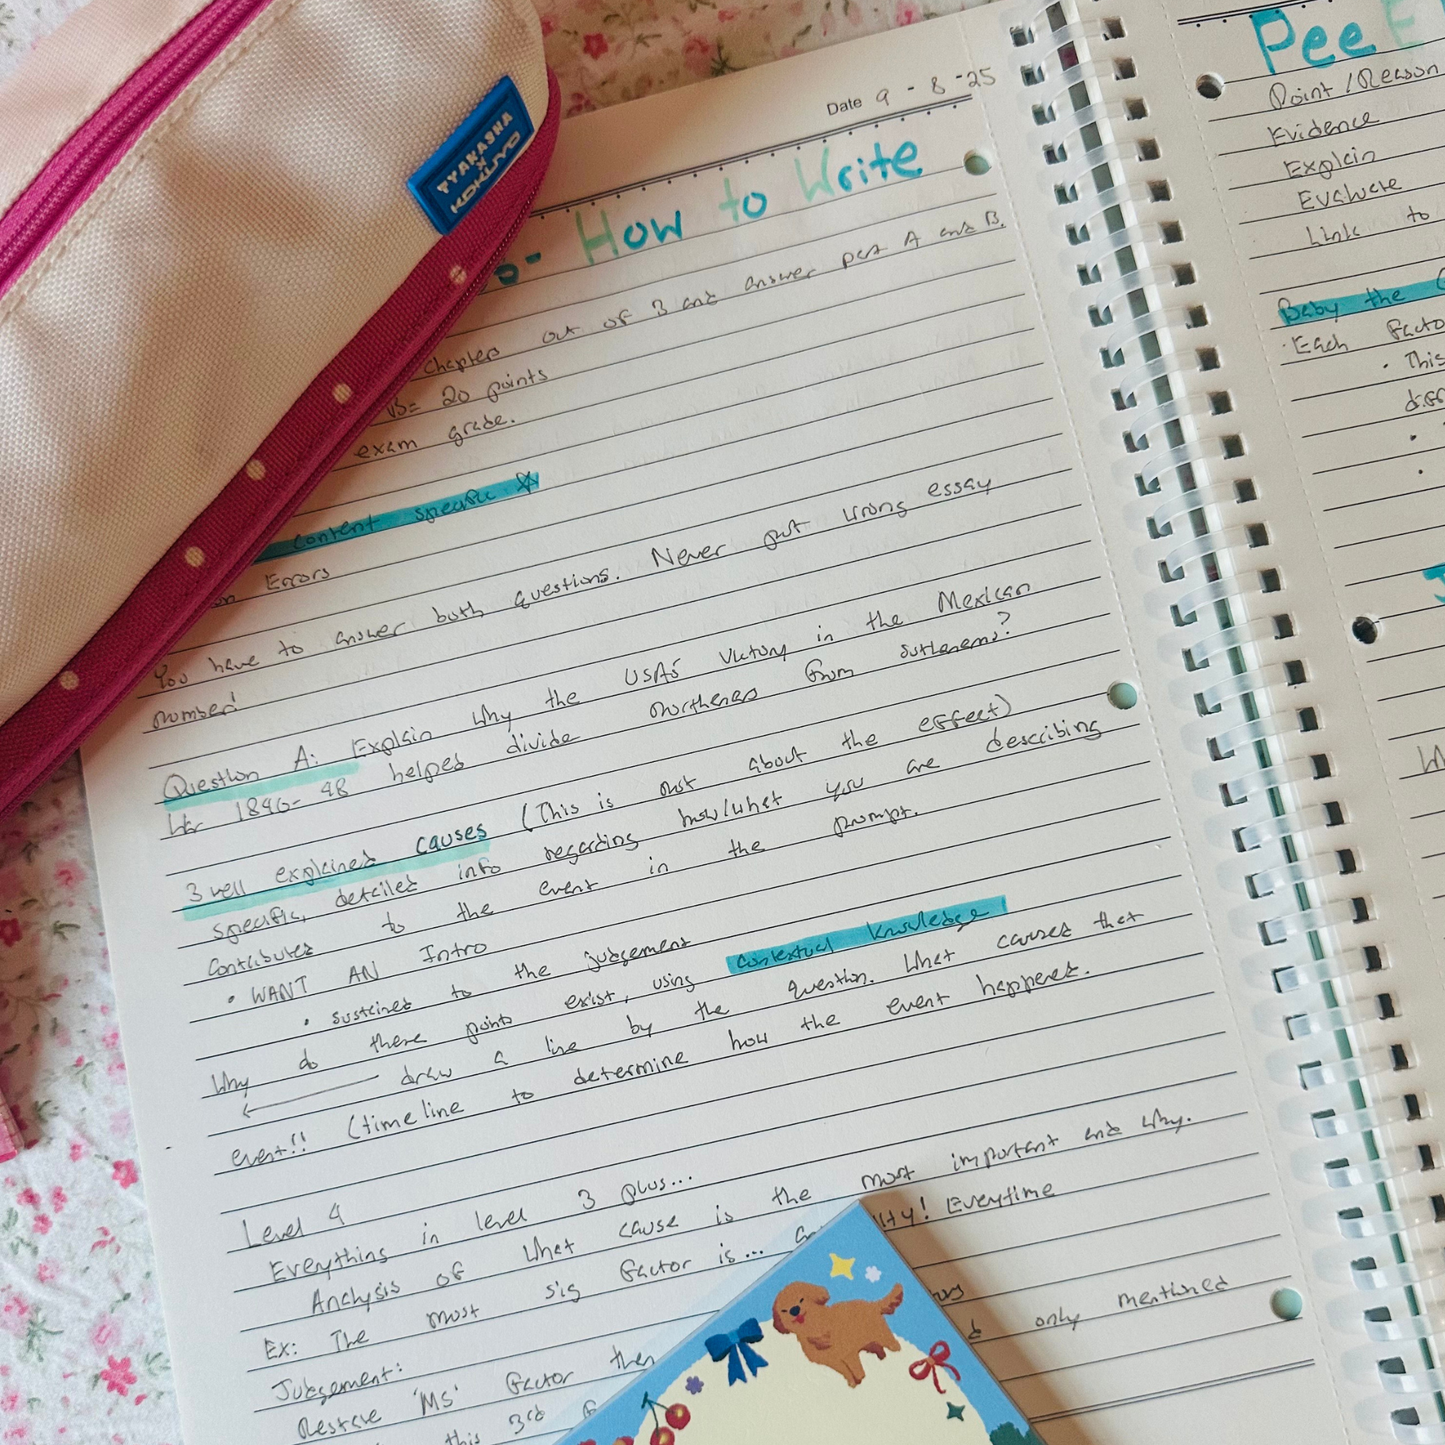 TYAKASHA
×
KOKUYO
Date 9-8-25
o- How to Write
chapters out of 3 and answer part A and B.
= 20 points
exam grade.
Content specific ☆
on Errors
You have to answer both questions. Never put wrong essay
number!
Question A: Explain why the USA's victory in the Mexican
War 1846-48 helped divide northeners from
3 well explained causes (This is not about the effect)
specific, detailed info regarding how/what you are describing
contributed to the event in the prompt.
• WANT AN Intro
• sustained to the judgement
Why do these points exist, using contextual knowledge
draw a line by the question. What caused that
event!! (timeline to determine how the event happened.
Level 4
Everything in level 3 plus...
Analysis of what cause is the most important and why.
Ex: The most sig factor is... Everytime
Judgement:
Restate 'MS' factor then only mentioned
this 3rd
Pee
Point/Reason
Evidence
Explain
Evaluate
Link to
Baby the
• Each facto
• This
diff